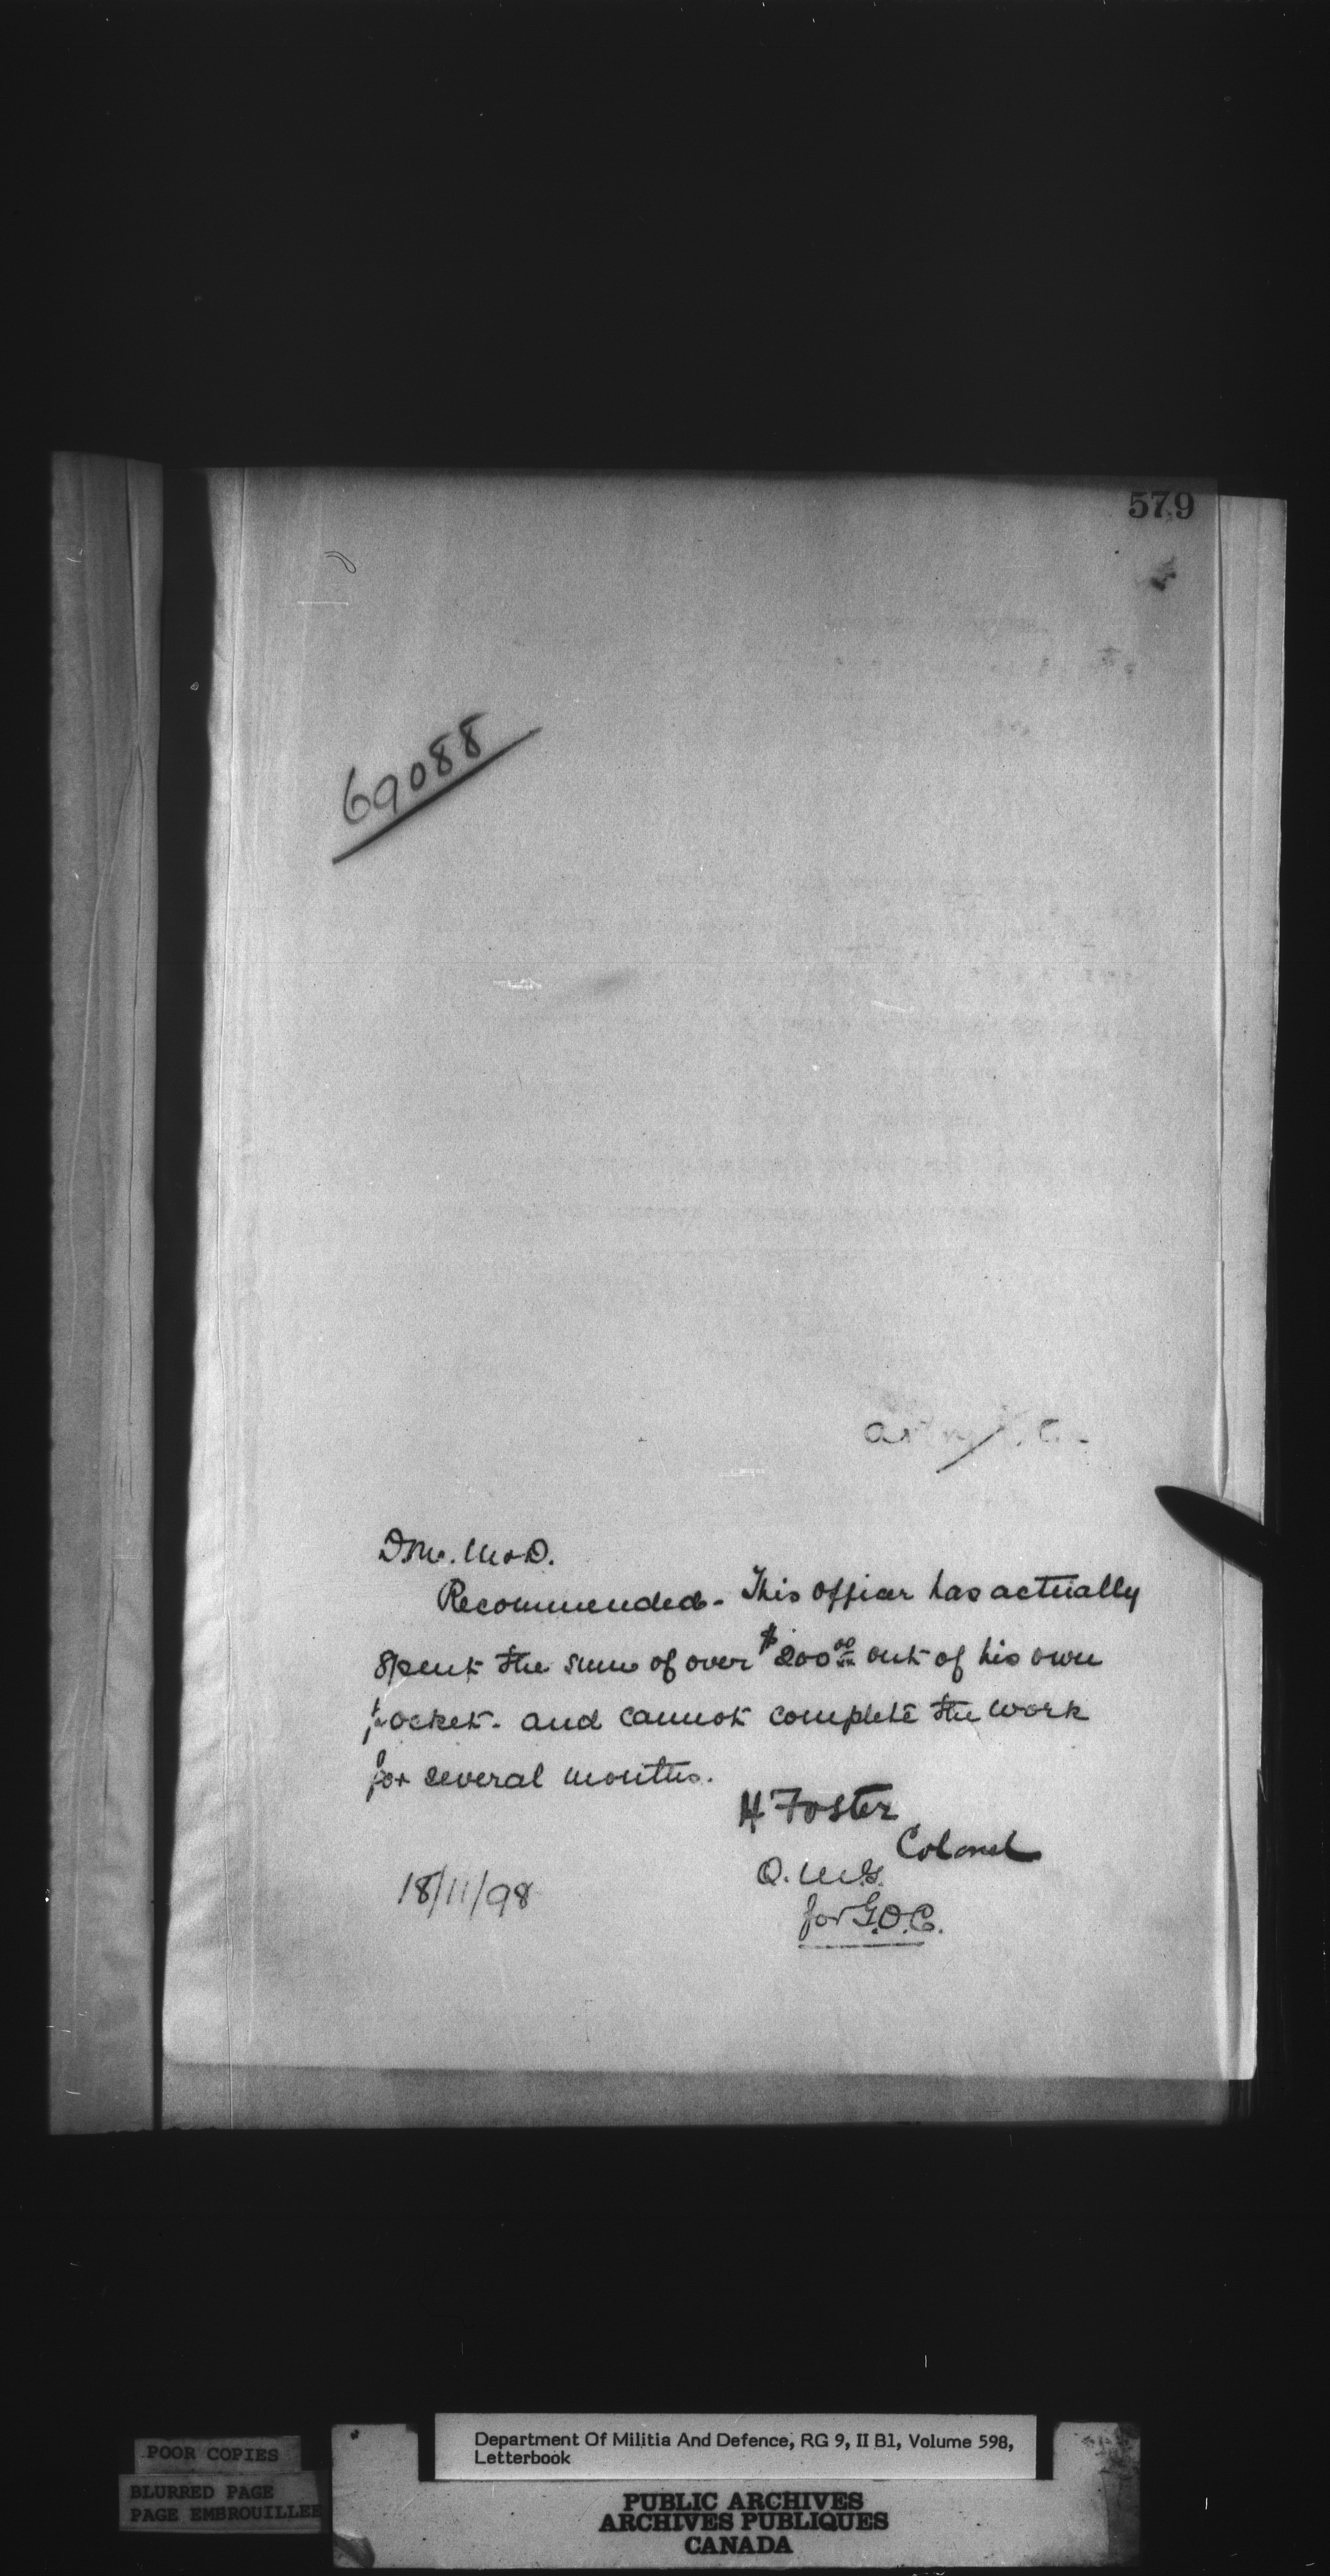 579
69088
D.M. M&D.
Recommended - This officer has actually
spent the sum of over $200.00 out of his own
pocket - and cannot complete the work
for several months.
H Foster
Colonel
Q.M.G.
for G.O.C.
18/11/98
POOR COPIES
BLURRED PAGE
PAGE EMBROUILLEE
Department Of Militia And Defence, RG 9, II B1, Volume 598,
Letterbook
PUBLIC ARCHIVES
ARCHIVES PUBLIQUES
CANADA